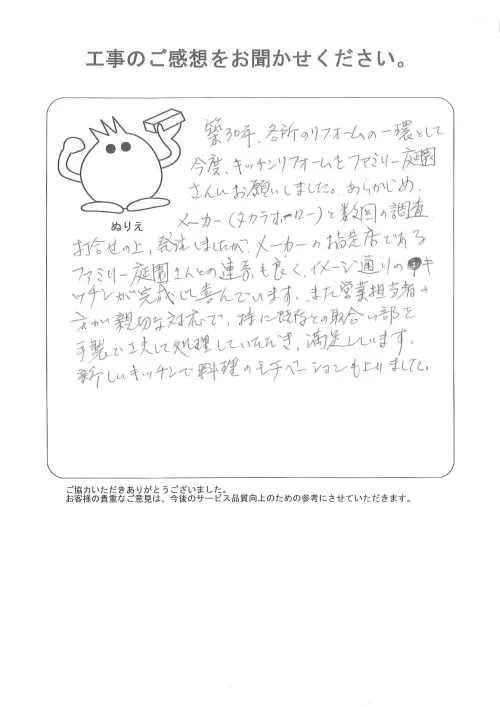 工事のご感想をお聞かせください。
築30年、各所のリフォームの一環として
今度、キッチンリフォームをファミリー庭園
さんにお願いしました。あらかじめ、
メーカー(タカラホーロー)と数回の調査、
ぬりえ
打合せの上、発注しましたが、メーカーの指定店である
ファミリー庭園さんとの連携も良く、イメージ通りのキ
ッチンが完成し喜んでいます。また営業担当者の
方が親切な対応で、特に既存との取合い部を
手製で工夫して処理していただき、満足しています。
新しいキッチンで料理のモチベーションも上りました。
ご協力いただきありがとうございました。
お客様の貴重なご意見は、今後のサービス品質向上のための参考にさせていただきます。